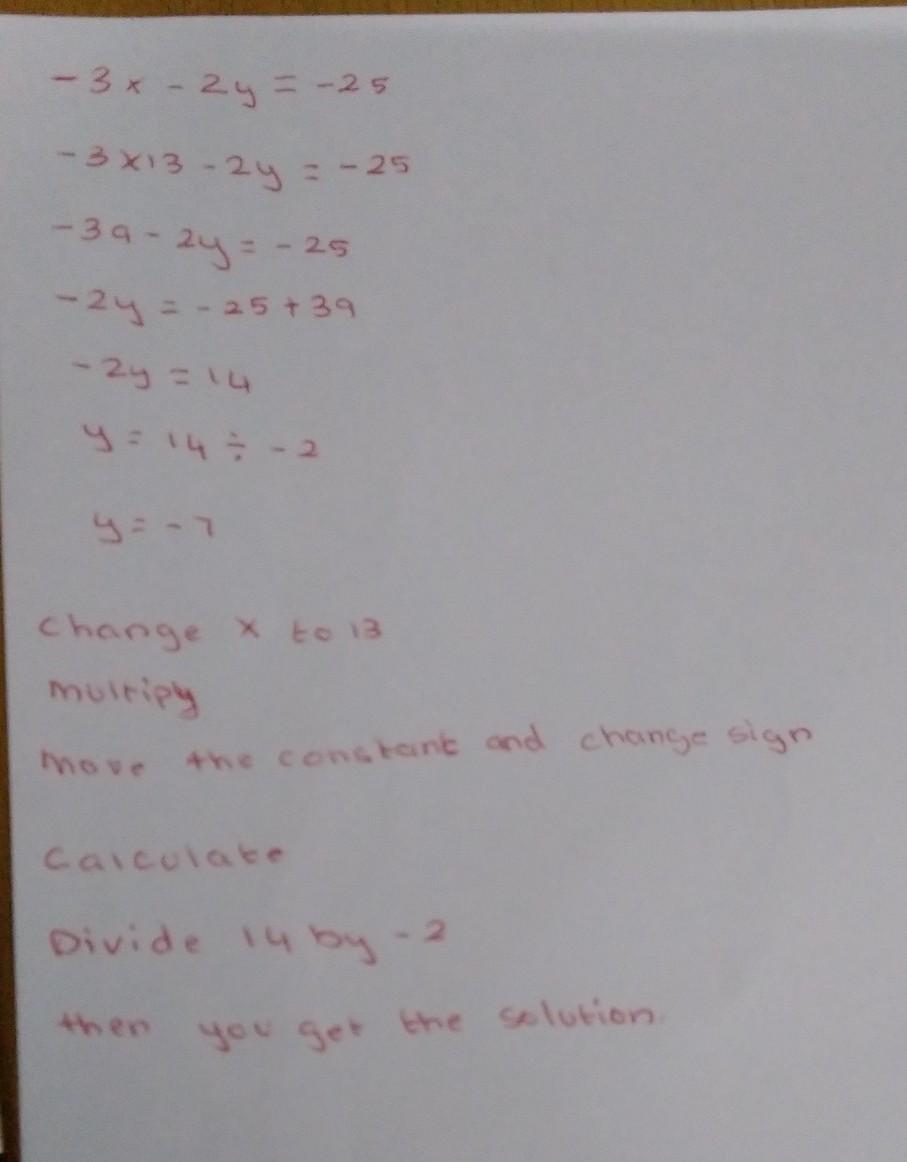 -3x - 2y = -25
-3 x 13 - 2y = -25
-39 - 2y = -25
-2y = -25 + 39
-2y = 14
y = 14 ÷ -2
y = -7
change x to 13
multiply
move the constant and change sign
calculate
Divide 14 by -2
then you get the solution.